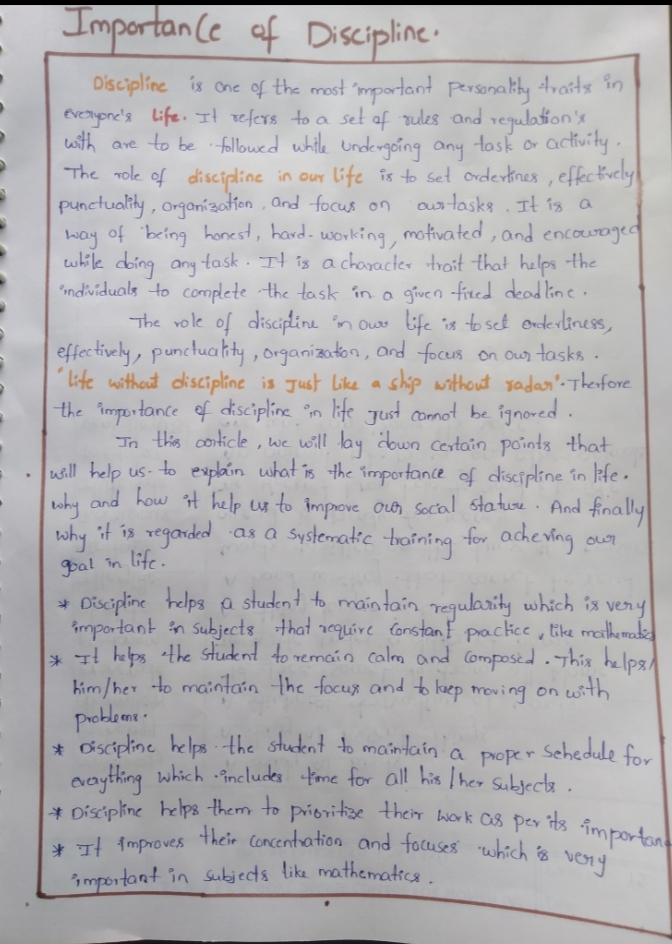 Importance of Discipline.
Discipline is one of the most important personality traits in
everyone's life. It refers to a set of rules and regulation's
with are to be followed while undergoing any task or activity.
The role of discipline in our life is to set orderlines, effectively
punctuality, organization, and focus on our tasks. It is a
way of being honest, hard-working, motivated, and encouraged
while doing any task. It is a character trait that helps the
individuals to complete the task in a given fixed deadline.
The role of discipline in our life is to set orderliness,
effectively, punctuality, organization, and focus on our tasks.
"life without discipline is Just like a ship without radar". Therfore
the importance of discipline in life Just cannot be ignored.
In this article, we will lay down certain points that
will help us to explain what is the importance of discipline in life.
why and how it help us to improve our social stature. And finally
why it is regarded as a systematic training for acheving our
goal in life.
* Discipline helps a student to maintain regularity which is very
important in subjects that require constant practice, like mathematics
* It helps the student to remain calm and composed. This helps
him/her to maintain the focus and to keep moving on with
problems.
* Discipline helps the student to maintain a proper schedule for
everything which includes time for all his/her subjects.
* Discipline helps them to prioritize their work as per its importan
* It improves their concentration and focuses which is very
important in subjects like mathematics.